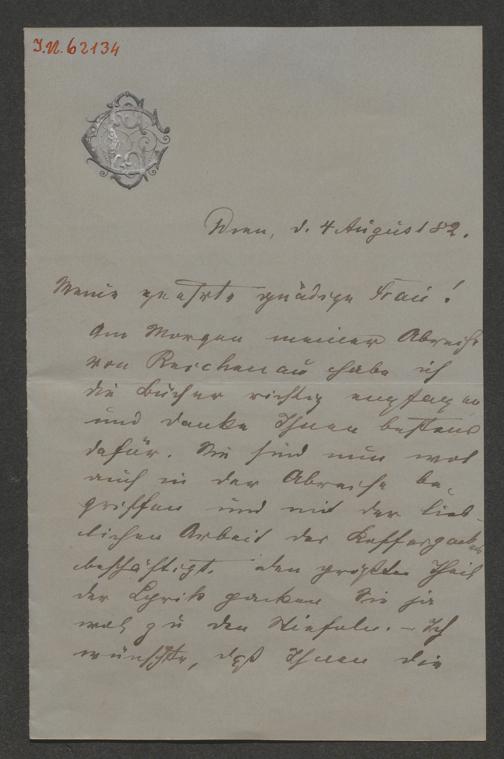 J.N. 62134
Wien, d. 4 August 82.
Meine geehrte gnädige Frau!
Am Morgen meiner Abreise
von Reichenau habe ich
die Bücher richtig empfangen
und danke Ihnen bestens
dafür. Sie sind nun wol
auch in der Abreise be-
griffen und mit der lieb-
lichen Arbeit des Kofferpackens
beschäftigt. Den größten Theil
der Lyrik packen Sie ja
wol zu den Stiefeln. – Ich
wünschte, daß Ihnen die